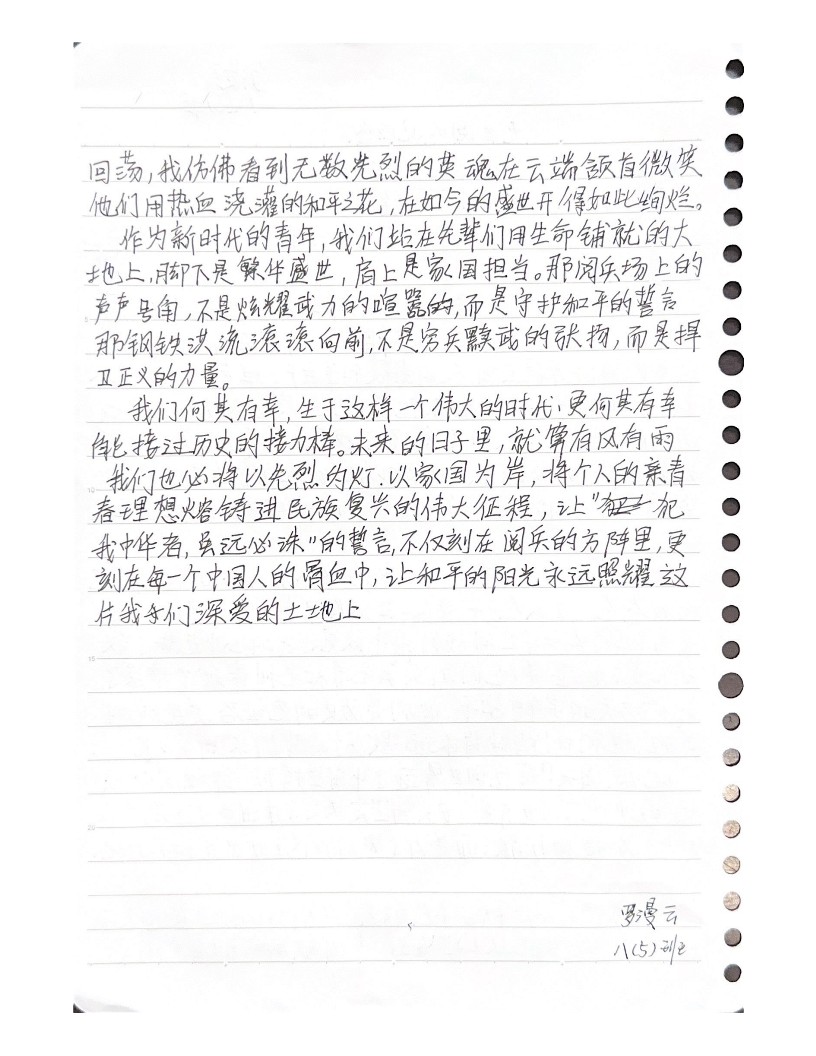 回荡,我仿佛看到无数先烈的英魂在云端颔首微笑
他们用热血浇灌的和平之花,在如今的盛世开得如此绚烂。
作为新时代的青年,我们站在先辈们用生命铺就的大
地上,脚下是繁华盛世,肩上是家国担当。那阅兵场上的
声声号角,不是炫耀武力的喧嚣的,而是守护和平的誓言
那钢铁洪流滚滚向前,不是穷兵黩武的张扬,而是捍
卫正义的力量。
我们何其有幸,生于这样一个伟大的时代,更何其有幸
能接过历史的接力棒。未来的日子里,就算有风有雨
我们也必将以先烈为灯,以家国为岸,将个人的亲青
春理想熔铸进民族复兴的伟大征程,让"犯
我中华者,虽远必诛"的誓言,不仅刻在阅兵的方阵里,更
刻在每一个中国人的骨血中,让和平的阳光永远照耀这
片我们深爱的土地上
罗漫云
八(5)班